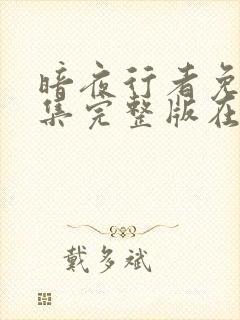 暗夜行者免
集完整版在
戴多斌